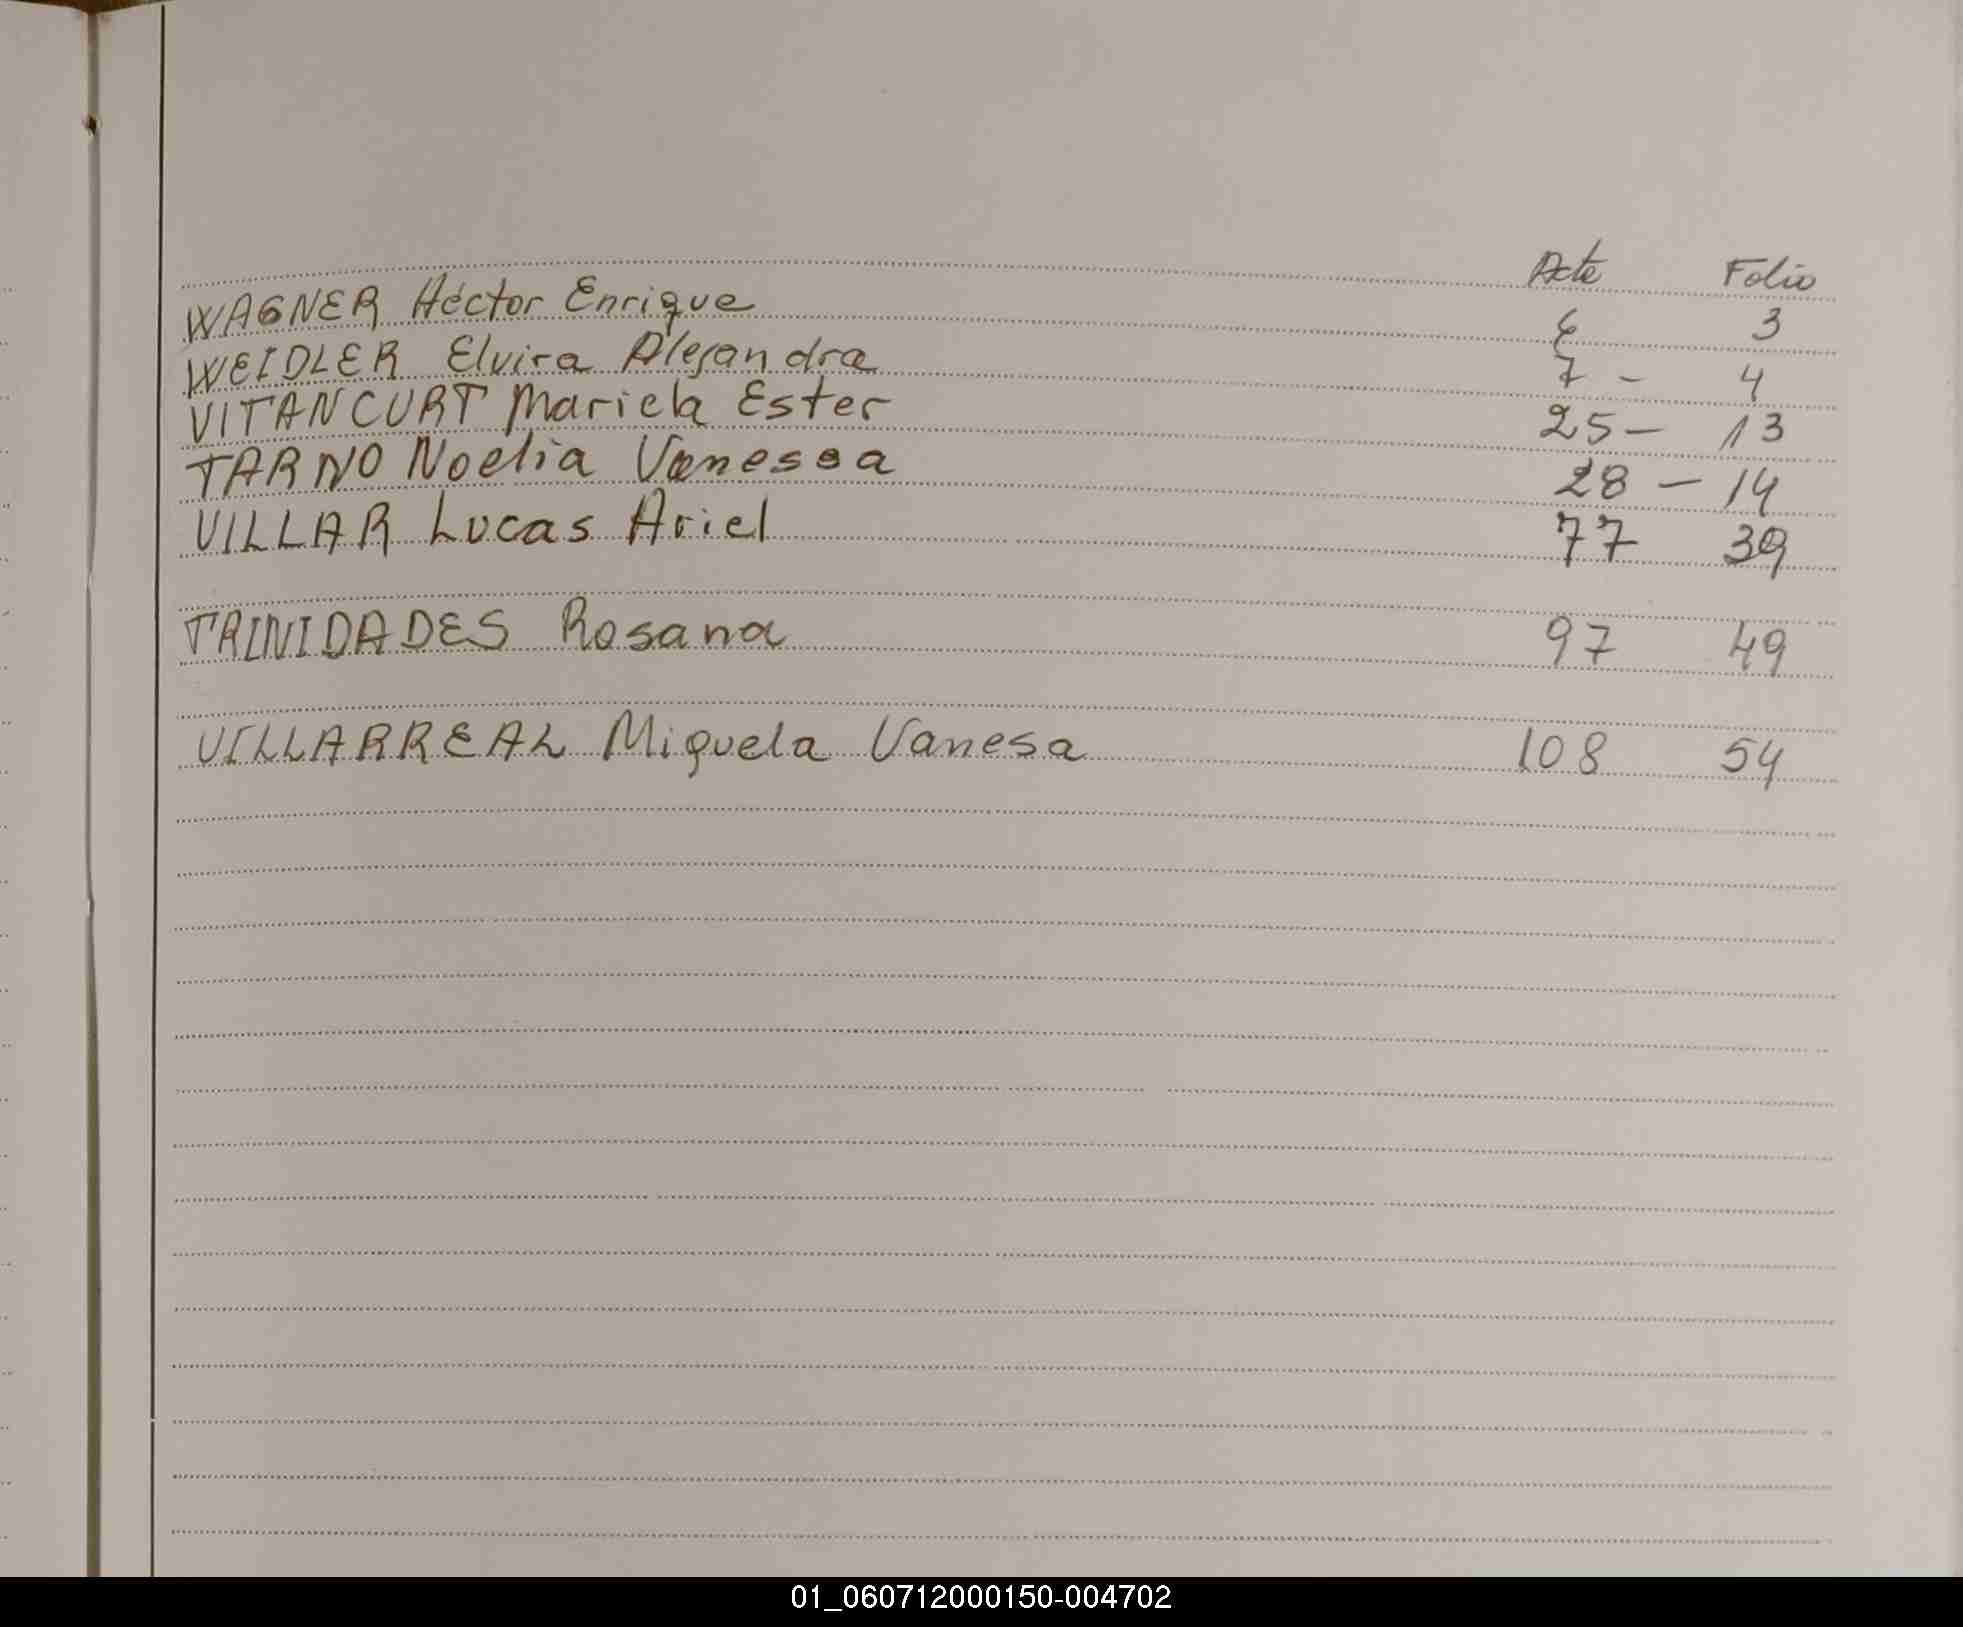 Acta Folio
WAGNER Héctor Enrique 6 3
WEIDLER Elvira Alejandra 7 - 4
VITANCURT Mariela Ester 25 - 13
TARNO Noelia Vanessa 28 - 14
VILLAR Lucas Ariel 77 39
TRINIDADES Rosana 97 49
VILLARREAL Miguela Vanesa 108 54
01_060712000150-004702